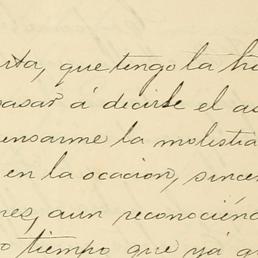 rta, que tengo la ho
pasar á decirle el as
ensarme la molestia
en la ocacion, since
res, aun reconocién
o tiempo que yá g